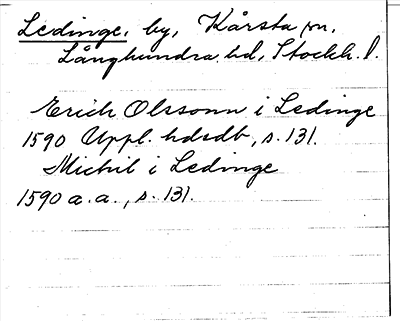 Ledinge, by, Kårsta sn,
Långhundra hd, Stockh. l.
Erich Olssonn i Ledinge
1590 Uppl. hdsdb, s. 131.
Michil i Ledinge
1590 a.a., s. 131.